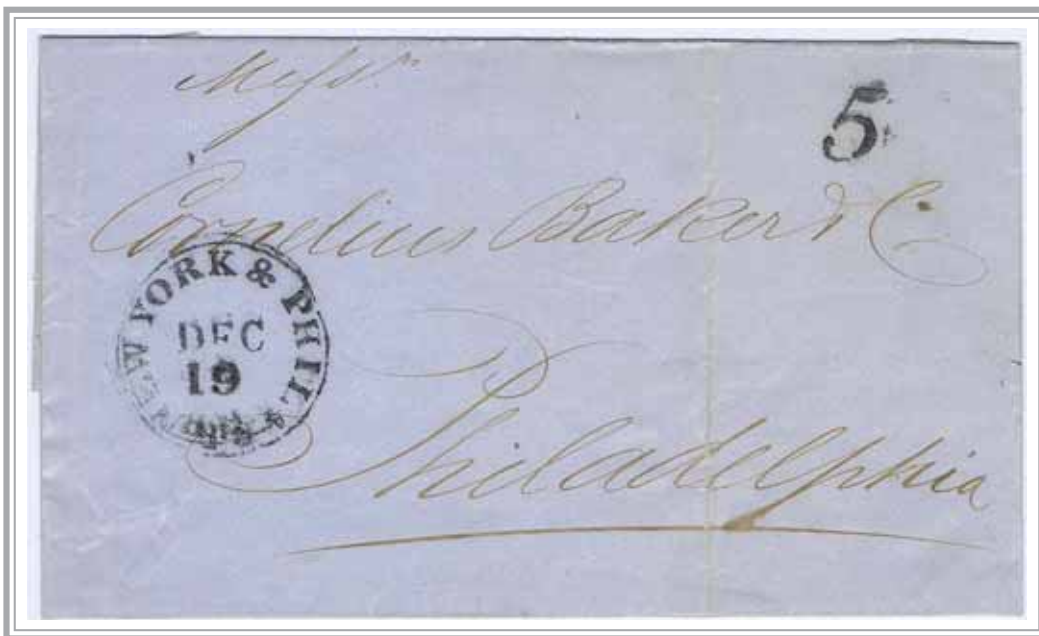 Messrs
5
Cornelius Baker & Co
NEW YORK & PHILA
DEC
19
Philadelphia